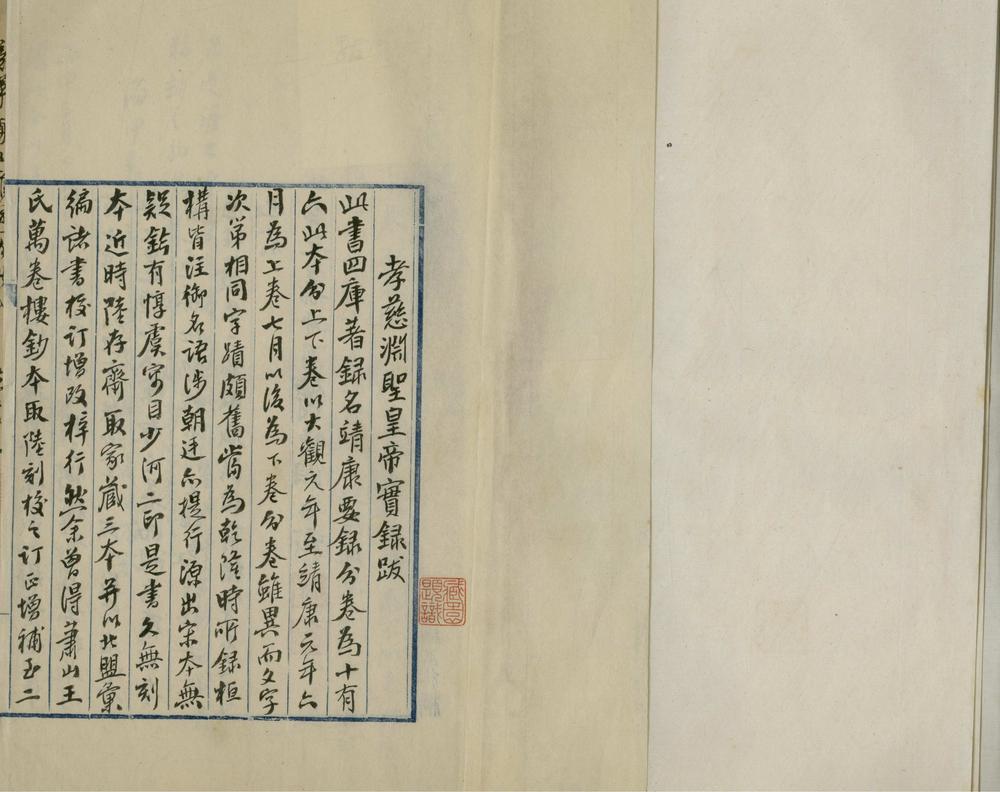 孝慈淵聖皇帝實録跋
此書四庫著録名靖康要録分卷為十有
六此本分上下卷以大觀元年至靖康元年六
月為上卷七月以後為下卷分卷雖異而文字
次第相同字蹟頗舊當為乾隆時所録桓
構皆注御名語涉朝廷亦提行源出宋本無
疑鈐有惇虞寓目少河二印是書久無刻
本近時陸存齋取家藏三本并以北盟彙
編諸書校訂增改梓行然余曾得蕭山王
氏萬卷樓鈔本取陸刻校之訂正增補至二